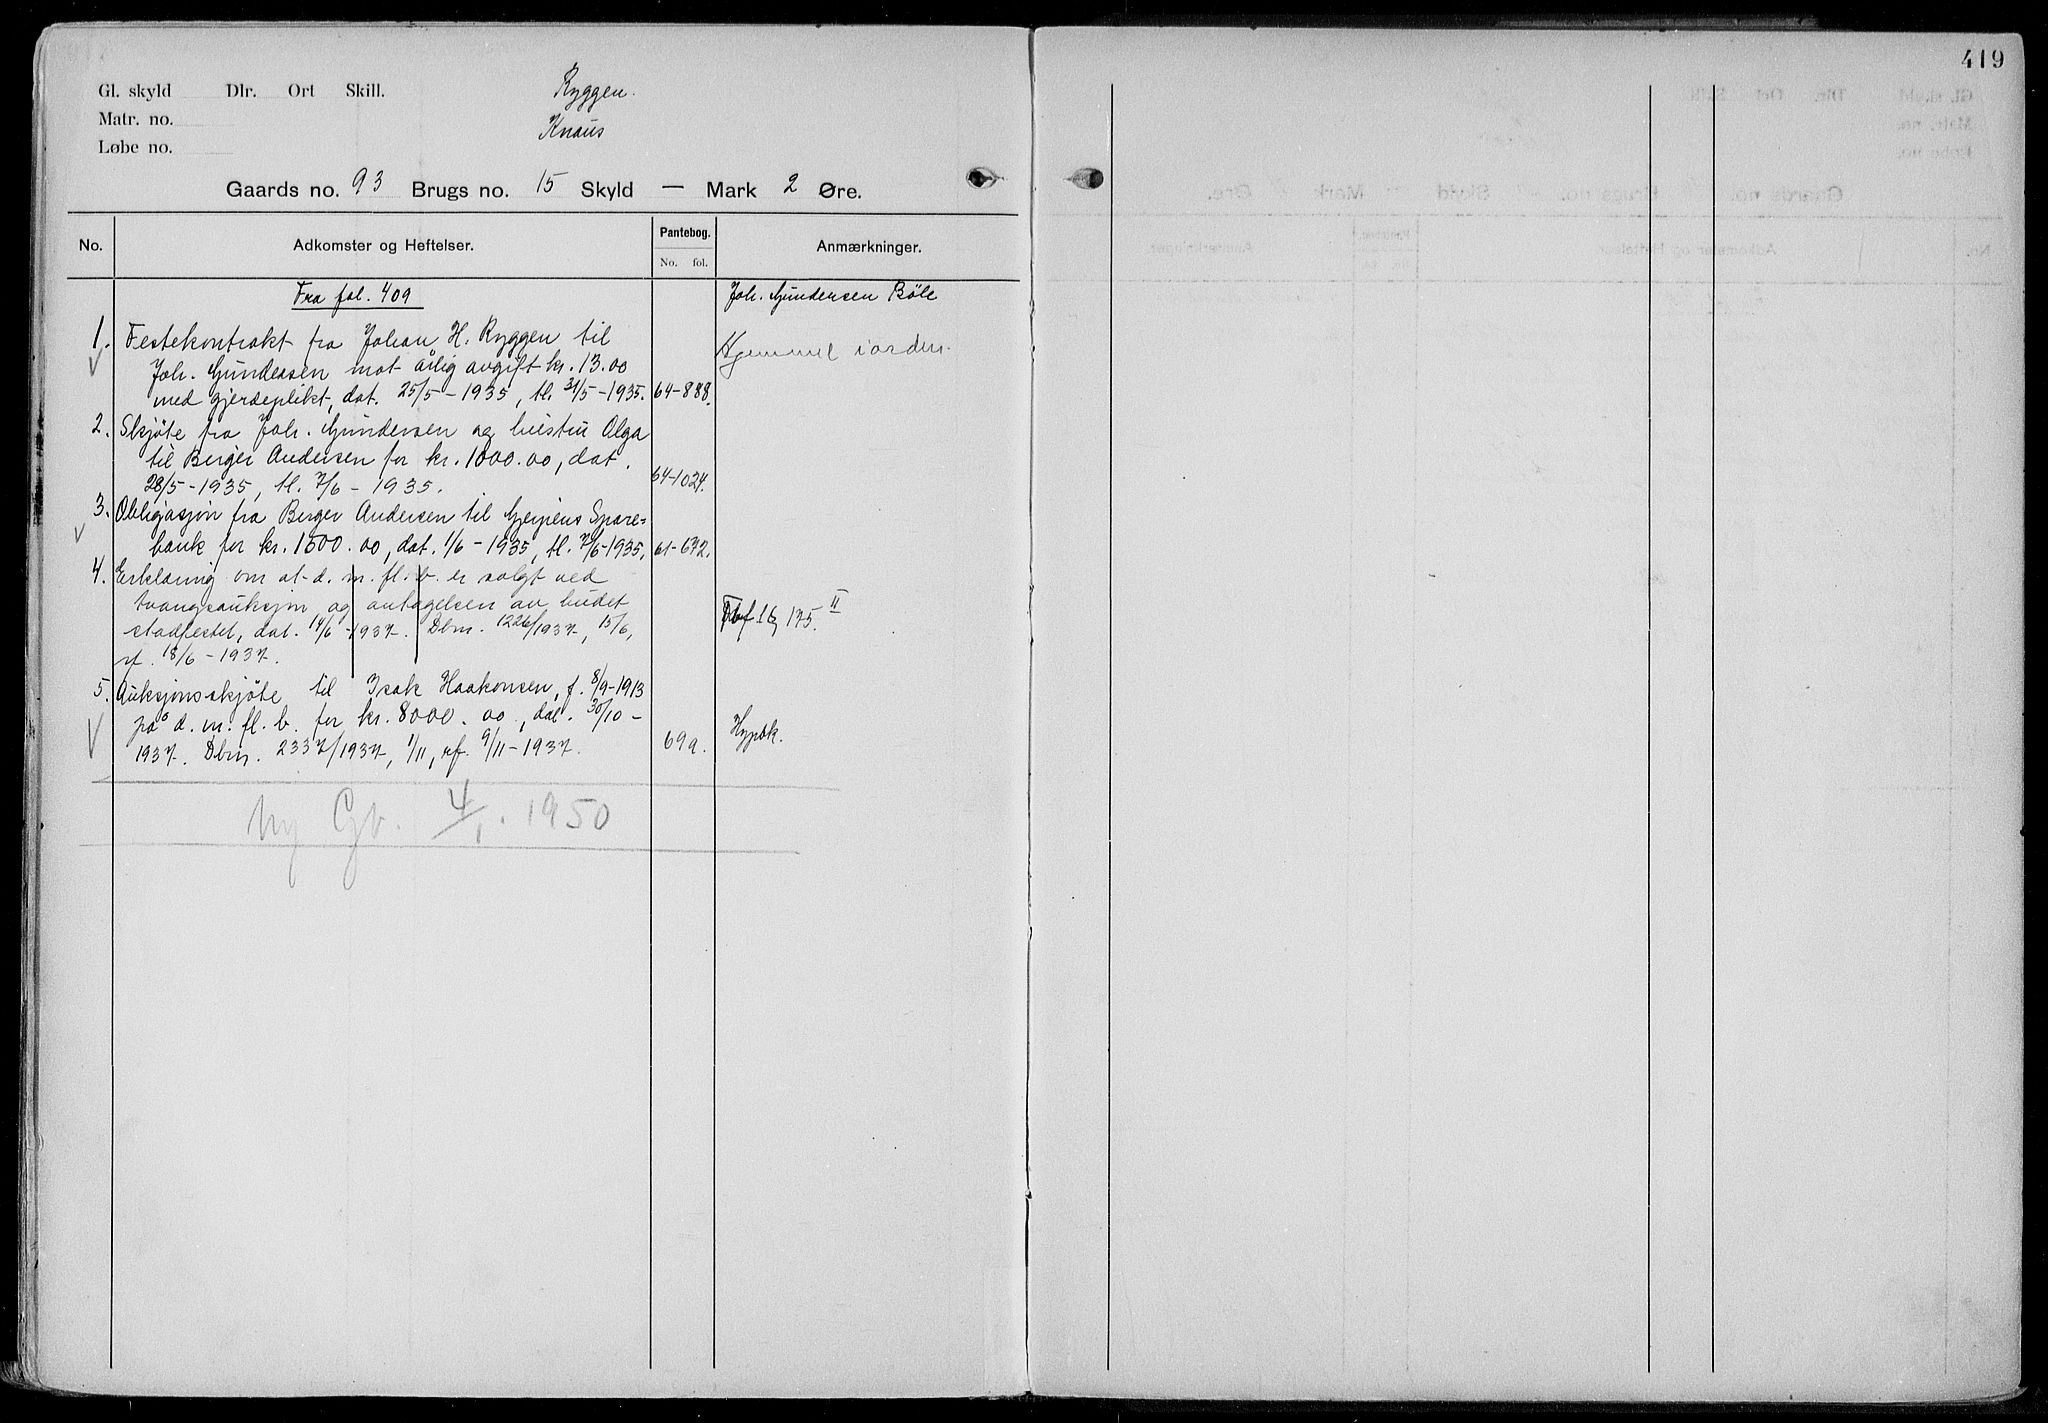 419
Gl. skyld Dlr. Ort Skill.
Matr. no.
Løbe no.
Ryggen.
Knaus
Gaards no. 93 Brugs no. 15 Skyld — Mark 2 Øre.
No. Adkomster og Heftelser. Pantebog. No. fol. Anmærkninger.
Fra fol. 409
Joh. Gundersen Böle
1. Festekontrakt fra Johan H. Ryggen til
Joh. Gundersen mot årlig avgift kr. 13.00
med gjerdeplikt, dat. 25/5-1935, tl. 31/5-1935. 64-888.
Hjemmel i orden.
2. Skjöte fra Joh. Gundersen og hustru Olga
til Birger Andersen for kr. 1000.00, dat.
28/5-1935, tl. 7/6-1935. 64-1024.
3. Obligasjon fra Birger Andersen til Gjerpens Spare=
bank for kr. 1500.00, dat. 1/6-1935, tl. 7/6-1935. 61-672.
4. Erklæring om at d. m. fl. b. er solgt ved
tvangsauksjon, og antagelsen av budet
stadfestet, dat. 14/6-1937. Dbnr. 1226/1937, 15/6,
rf. 18/6-1937.
175. II
5. Auksjonsskjöte til Isak Haakonsen, f. 8/9-1913
på d. m. fl. b. for kr. 8000.00, dat. 30/10-
1937. Dbnr. 2337/1937, 1/11, rf. 9/11-1937. 69a.
Hypotek.
Ny Gb. 4/1. 1950